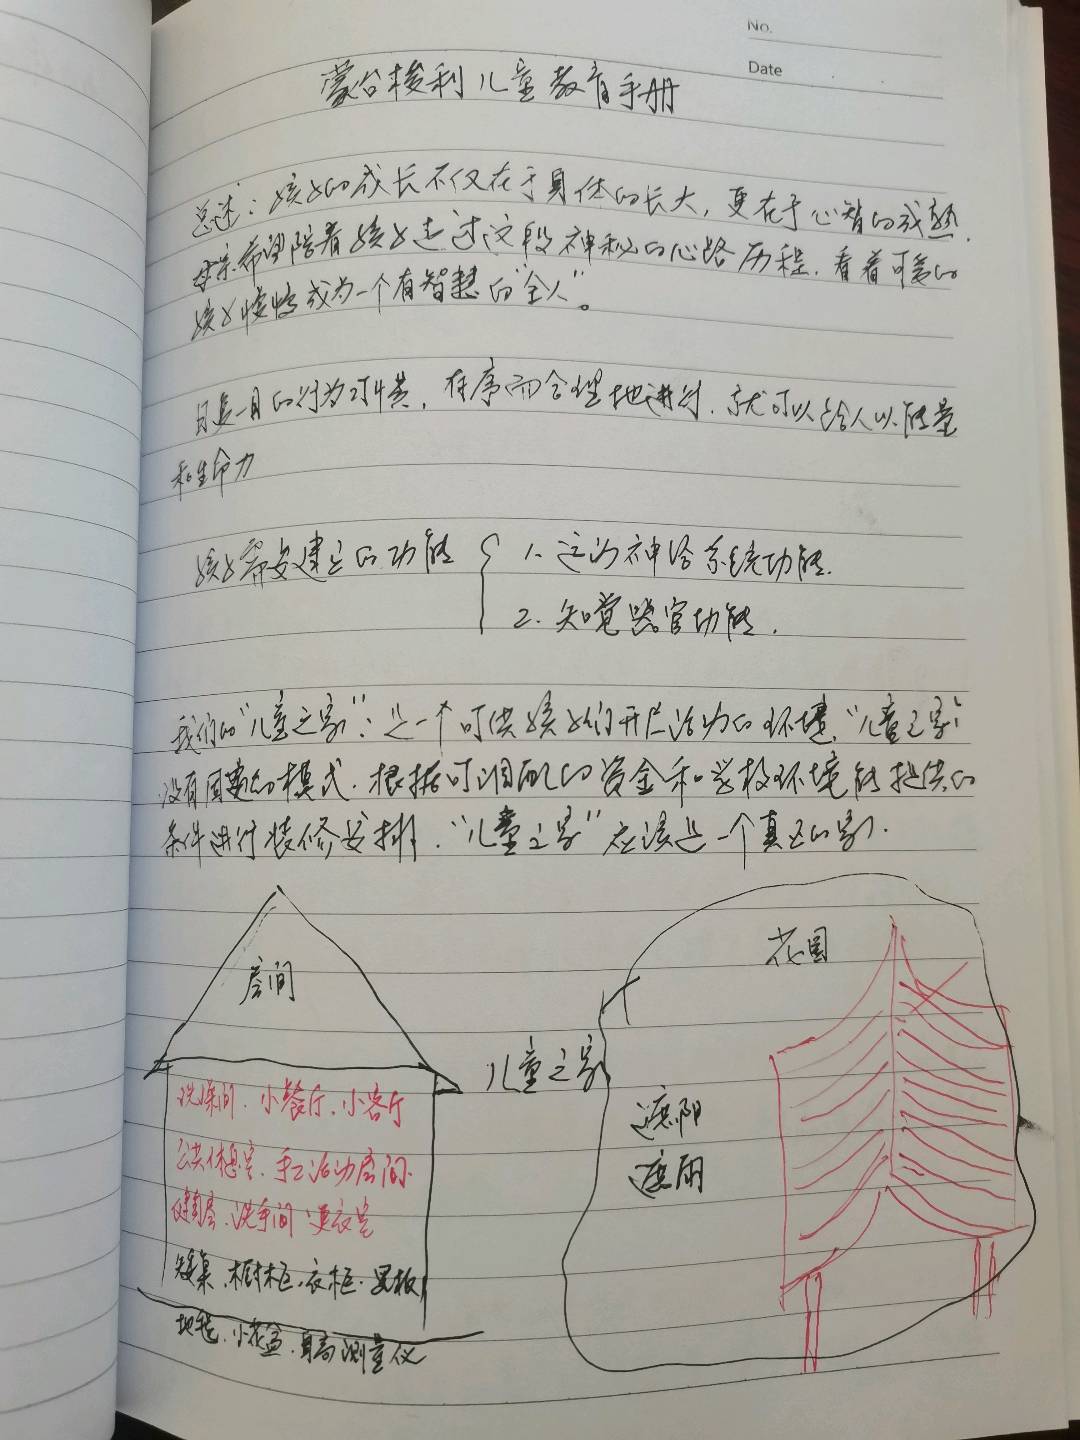 No.
Date
蒙台梭利儿童教育手册
总述：孩子的成长不仅在于身体的长大，更在于心智的成熟。
母亲希望陪着孩子走过这段神秘的心路历程，看着可爱的
孩子慢慢成为一个有智慧的“全人”。
日复一日的行为习惯，有序而合理地进行，就可以给人以能量
和生命力
孩子需要建立的功能
1、运动神经系统功能.
2. 知觉器官功能.
我们的“儿童之家”：是一个可供孩子们开展活动的环境，“儿童之家”
没有固定的模式，根据可调配的资金和学校环境能提供的
条件进行装修安排，“儿童之家”应该是一个真正的家.
房间
花园
儿童之家
遮阳
遮雨
洗澡间、小餐厅、小客厅
公共休息室、手工活动房间.
健身房、洗手间 更衣室
矮桌、橱柜、衣柜、黑板
地毯、小花盆、身高测量仪